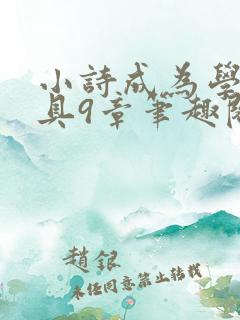 小詩成為學
具9章筆趣閣
趙銀
未經同意禁止轉載